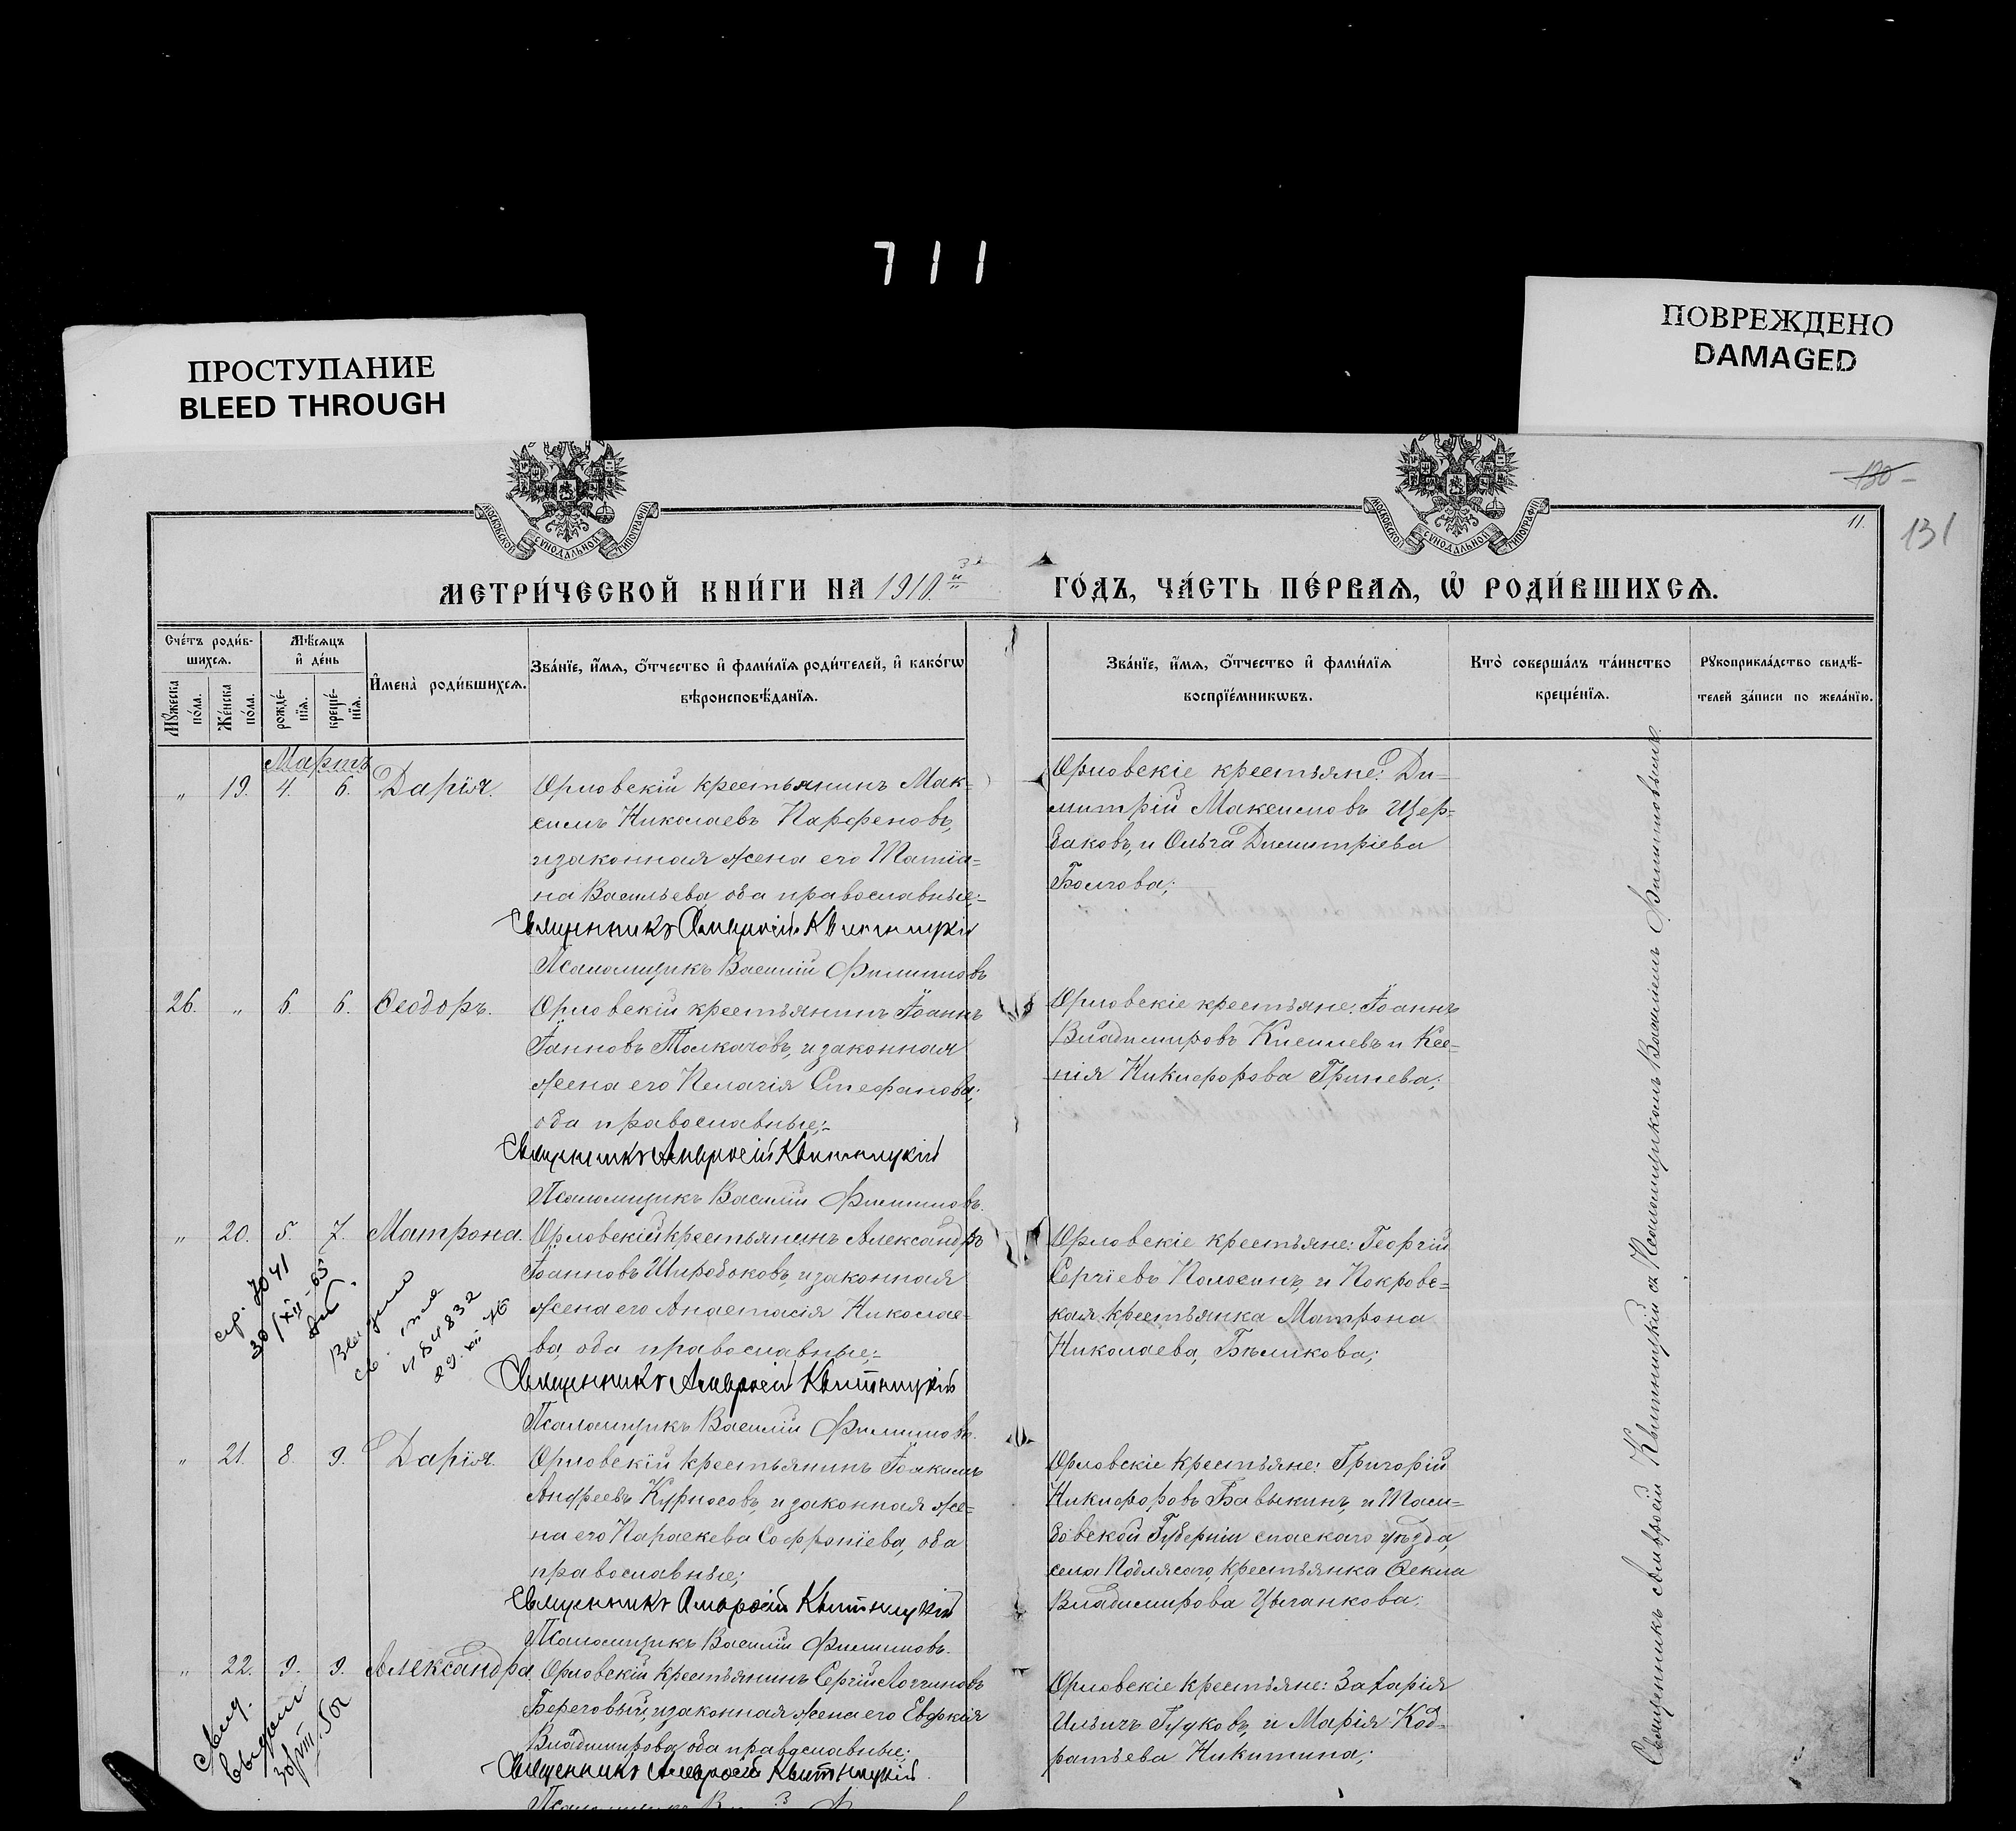 711
ПРОСТУПАНИЕ
BLEED THROUGH
ПОВРЕЖДЕНО
DAMAGED
МОСКОВСКОЙ СѴНОДАЛЬНОЙ ТИПОГРАФІИ
МОСКОВСКОЙ СѴНОДАЛЬНОЙ ТИПОГРАФІИ
130
131
11.
МЕТРИ́ЧЕСКОЙ КНИ́ГИ НА 1910.й
ГО́ДЪ, ЧА́СТЬ ПЕ́РВАѦ, Ѡ҆ РОДИ́ВШИХСѦ.
Сче́тъ роди́в-
шихсѧ.
Мꙋ́жеска по́ла.
Же́нска по́ла.
Мѣ́сѧцъ
и҆ де́нь
рожде́-
нїѧ.
креще́-
нїѧ.
И҆мена̀ роди́вшихсѧ.
Зва́нїе, и҆́мѧ, ѻ҆́тчество и҆ фами́лїѧ роди́телей, и҆ како́гѡ
вѣроисповѣ́данїѧ.
Зва́нїе, и҆́мѧ, ѻ҆́тчество и҆ фами́лїѧ
воспрїе́мникѡвъ.
Кто̀ соверша́лъ та́инство
креще́нїѧ.
Рꙋкоприкла́дство свидѣ́-
телей за́писи по жела́нїю.
Мартъ
„ 19. 4. 6. Дарія.
Орловскій крестьянинъ Мак-
симъ Николаевъ Парфеновъ,
и законная жена его Татіа-
на Васильева, оба православные;-
Священникъ Амвросій Квитницкій
Псаломщикъ Василій Филипповъ
Орловскіе крестьяне: Ди-
митрій Максимовъ Щер-
баковъ, и Ольга Димитріева
Болгова;
26. „ 6. 6. Ѳеодоръ.
Орловскій крестьянинъ Іоаннъ
Іанновъ Толкачовъ, и законная
жена его Пелагія Стефанова;
оба православные;-
Священникъ Амвросій Квитницкій
Псаломщикъ Василій Филипповъ.
Орловскіе крестьяне: Іоаннъ
Владимировъ Киселевъ и Ксе-
нія Никифорова Гринева;
„ 20. 5. 7. Матрона.
Орловскій крестьянинъ Александръ
Іоанновъ Широбоковъ, и законная
жена его Анастасія Николае-
ва, оба православные;-
Священникъ Амвросій Квитницкій
Псаломщикъ Василій Филипповъ.
Орловскіе крестьяне: Георгій
Сергіевъ Полосинъ, и Покровс-
кая крестьянка Матрона
Николаева, Бѣликова;
„ 21. 8. 9. Дарія.
Орловскій крестьянинъ Іоакимъ
Андреевъ Курносовъ, и законная же-
на его Параскева Софроніева, оба
православные;
Священникъ Амвросій Квитницкій
Псаломщикъ Василій Филипповъ.
Орловскіе крестьяне: Григорій
Никифоровъ Бавыкинъ, и Там-
бовской Губерніи спаского уѣзда,
села Подлясого, крестьянка Ѳекла
Владимирова Цыганкова;
„ 22. 9. 9. Александра.
Орловскій крестьянинъ Сергій Логгиновъ
Береговый, и законная жена его Евфимія
Владимирова, оба православные;
Священникъ Амвросій Квитницкій.
Орловскіе крестьяне: Захарія
Ильичъ Гудковъ, и Марія Код-
ратьева Никитина;
Священникъ Амвросій Квитницкій съ Псаломщикомъ Василіемъ Филипповымъ.